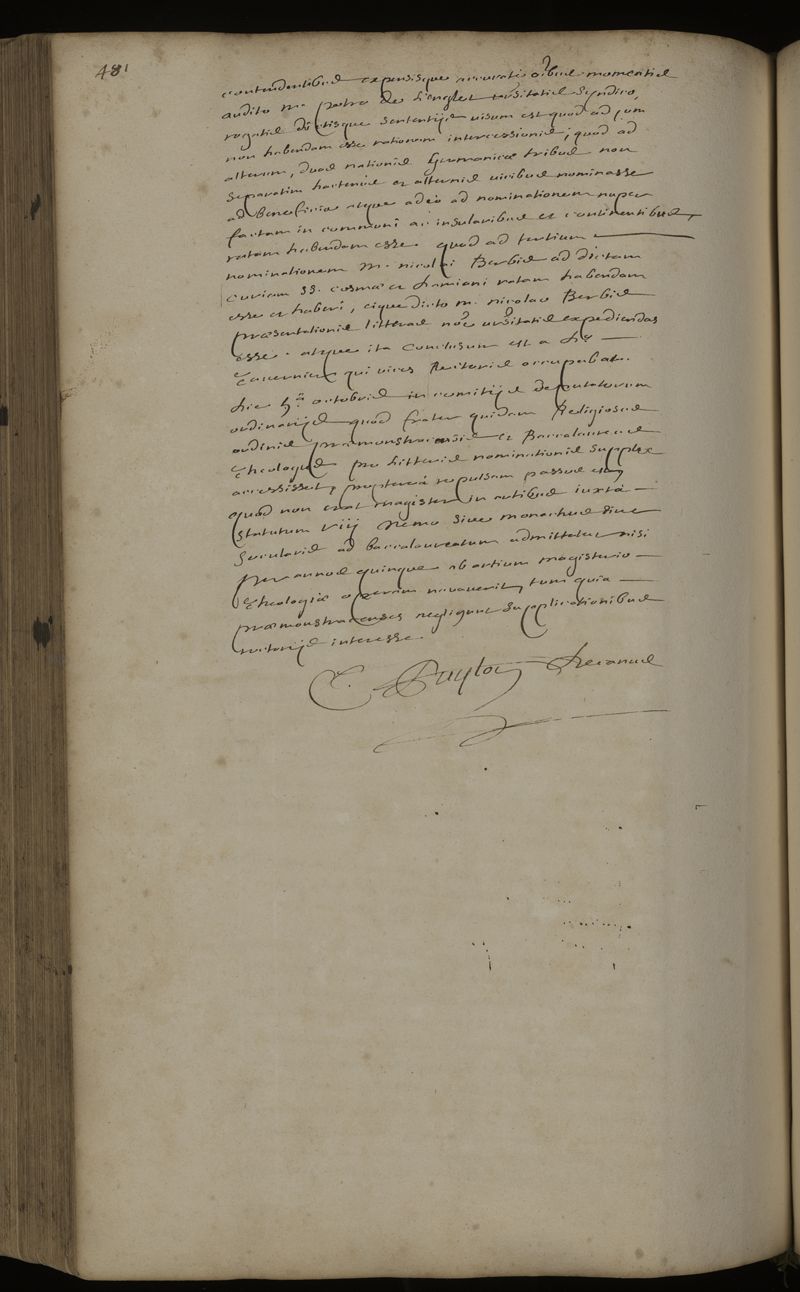 481
contendentibus expensisque accurate oibus momentis
audito M. Petro de Lenglet Vrsitatis Syndico,
rogatis dictisque sententijs visum est quod ad jum
non habendam esse rationem intercessionis, quod ad
alterum, duas nationis Germanicæ tribus non
separatim hactenus et alternis vicibus nominasse
ad beneficia atque adeo ad nominationem nuper
factam in communi ac insularibus et continentibus,
ratam habendam esse. quod ad tertium
nominationem M. nicolai Berbis ad dictam
Curiam SS. cosmæ et Damiani ratam habendam
esse et haberi, eique dicto M. nicolao Berbis
præsentationis litteras nræ vrsitatis expediendas
esse. atque ita Conclusum est a M.
Tavernier qui vices Rectoris occupabat.
Die 4a octobris in comitijs deputatorum
ordinarijs quod frater quidam Religiosus
ordinis præmonstracensis et Baccalaureus
Theologus pro litteris nominationis supplex
accessisset, proptereà repulsam passus est,
quod non erat magister in artibus iuxtà
statutum viij Nemo sive monachus sive
Secularis ad baccalaureatum admittatur nisi
per annos quinque ab artium magisterio
Theologiæ operam navaverit, tum quia
præmonstracenses negligunt supplicationibus
rectorijs interesse.
C. Puylon Decanus